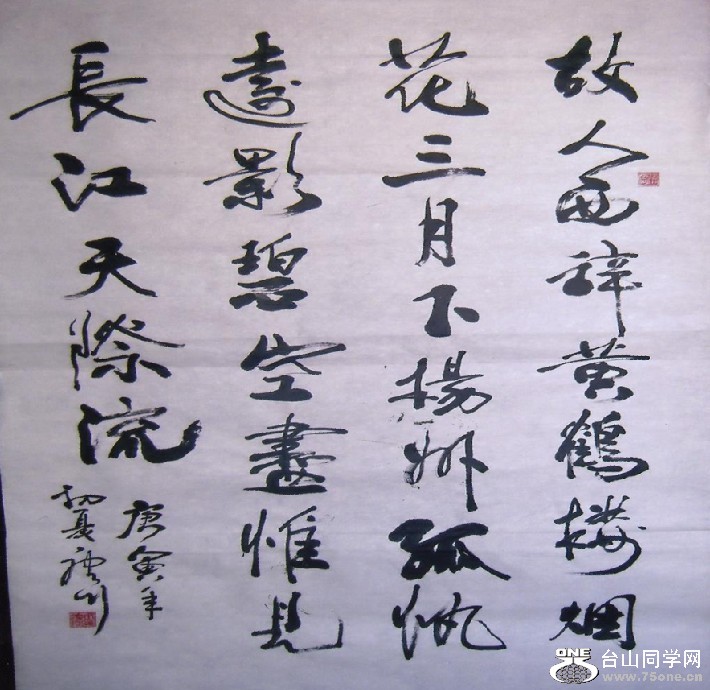 故人西辞黄鶴楼烟
花三月下揚州孤帆
遠影碧空盡惟見
長江天際流
庚寅年
初夏
ONE
台山同学网
www.75one.cn